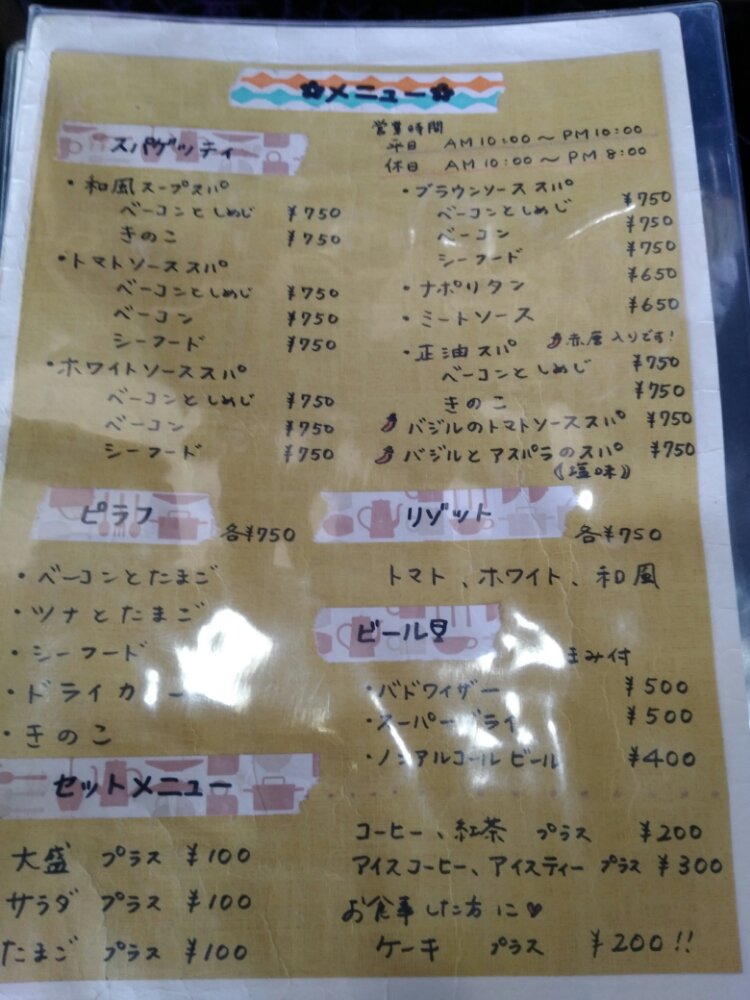 ✿メニュー✿
営業時間
平日 AM10:00～PM10:00
休日 AM10:00～PM8:00
スパゲッティ
・和風スープスパ
ベーコンとしめじ ¥750
きのこ ¥750
・トマトソーススパ
ベーコンとしめじ ¥750
ベーコン ¥750
シーフード ¥750
・ホワイトソーススパ
ベーコンとしめじ ¥750
ベーコン ¥750
シーフード ¥750
・ブラウンソーススパ
ベーコンとしめじ ¥750
ベーコン ¥750
シーフード ¥750
・ナポリタン ¥650
・ミートソース ¥650
赤唐入りです!
・正油スパ
ベーコンとしめじ ¥750
きのこ ¥750
バジルのトマトソーススパ ¥750
バジルとアスパラのスパ ¥750
《塩味》
ピラフ 各¥750
・ベーコンとたまご
・ツナとたまご
・シーフード
・ドライカレー
・きのこ
リゾット 各¥750
トマト、ホワイト、和風
ビール
まみ付
・バドワイザー ¥500
・スーパードライ ¥500
・ノンアルコールビール ¥400
セットメニュー
大盛 プラス ¥100
サラダ プラス ¥100
たまご プラス ¥100
コーヒー、紅茶 プラス ¥200
アイスコーヒー、アイスティー プラス ¥300
お食事した方に♥
ケーキ プラス ¥200!!